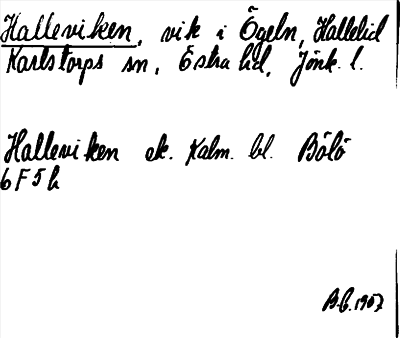 Halleviken, vik i Ögeln, Hallelid
Karlstorps sn, Östra hd, Jönk. l.
Halleviken ek. Kalm. bl. Bölö
6 F 5 h
B.G. 1967